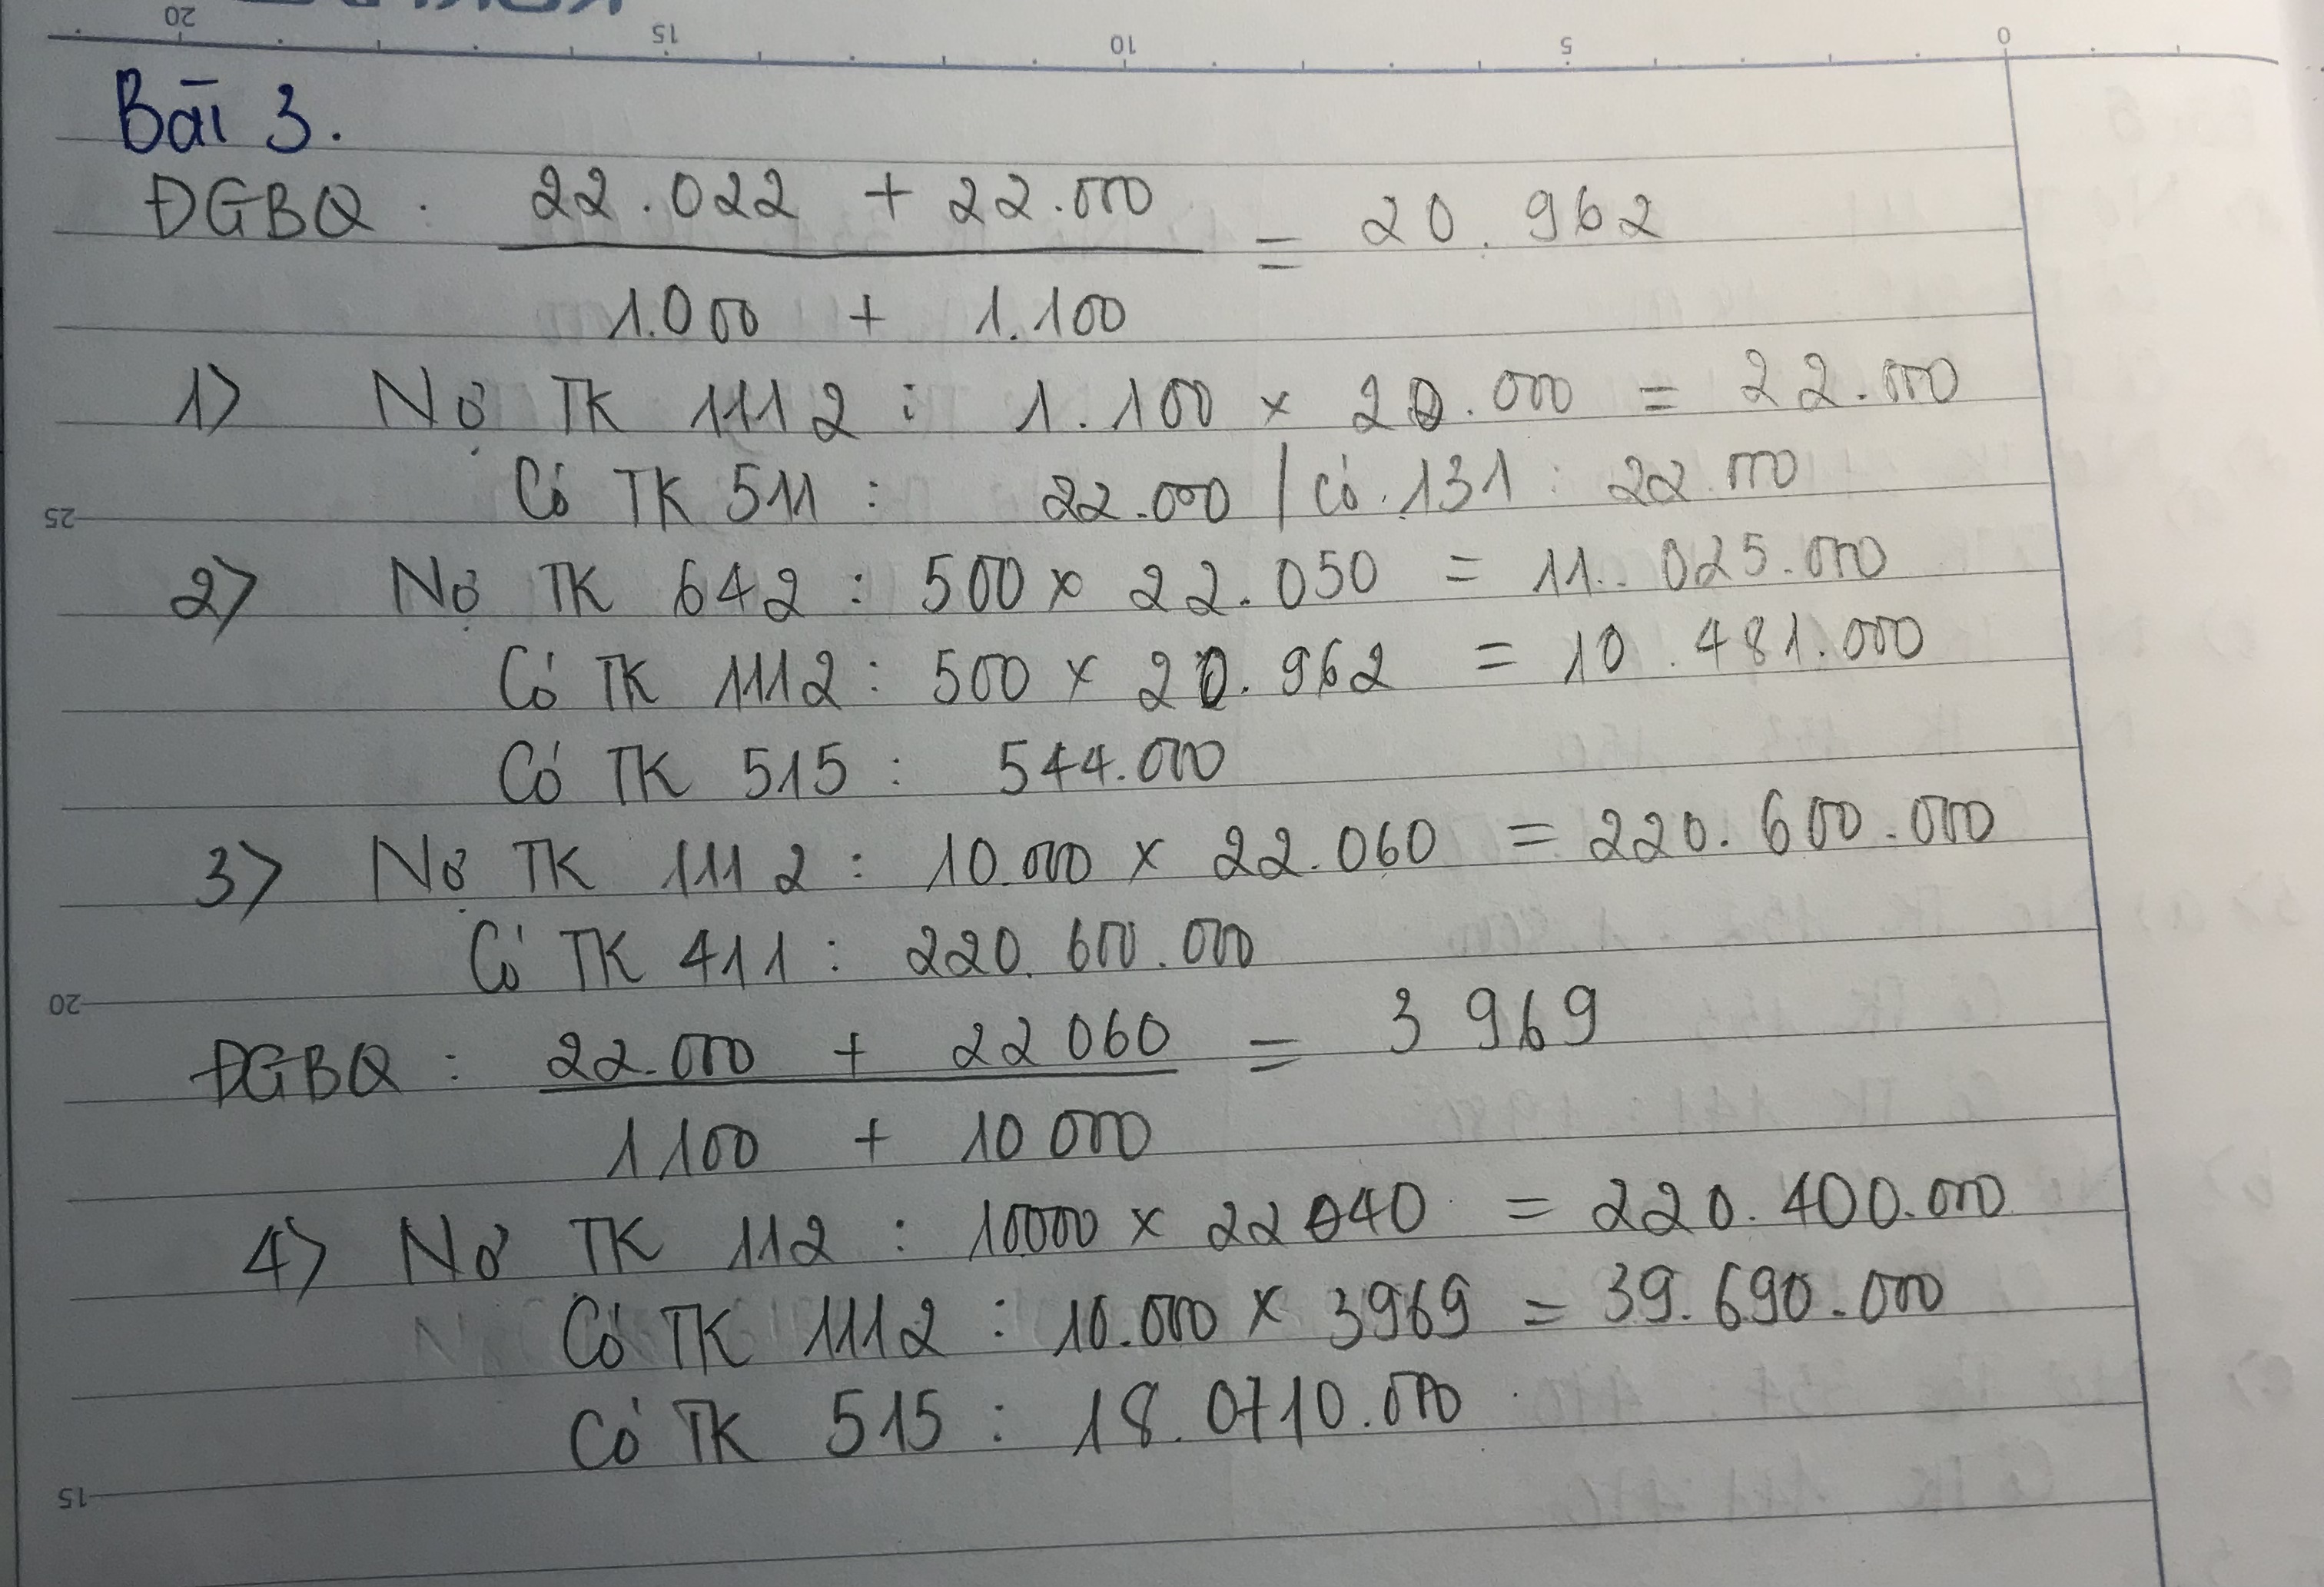 20 15 10 5 0
Bài 3.
ĐGBQ : 22.022 + 22.000 = 20.962
1.000 + 1.100
1> Nợ TK 1112 : 1.100 x 20.000 = 22.000
Có TK 511 : 22.000 / Có 131 : 22.000
25
2> Nợ TK 642 : 500 x 22.050 = 11.025.000
Có TK 1112 : 500 x 20.962 = 10.481.000
Có TK 515 : 544.000
3> Nợ TK 1112 : 10.000 x 22.060 = 220.600.000
Có TK 411 : 220.600.000
20
ĐGBQ : 22.000 + 22 060 = 3 969
1100 + 10 000
4> Nợ TK 112 : 10000 x 22040 = 220.400.000
Có TK 1112 : 10.000 x 3969 = 39.690.000
Có TK 515 : 18.0710.000
15